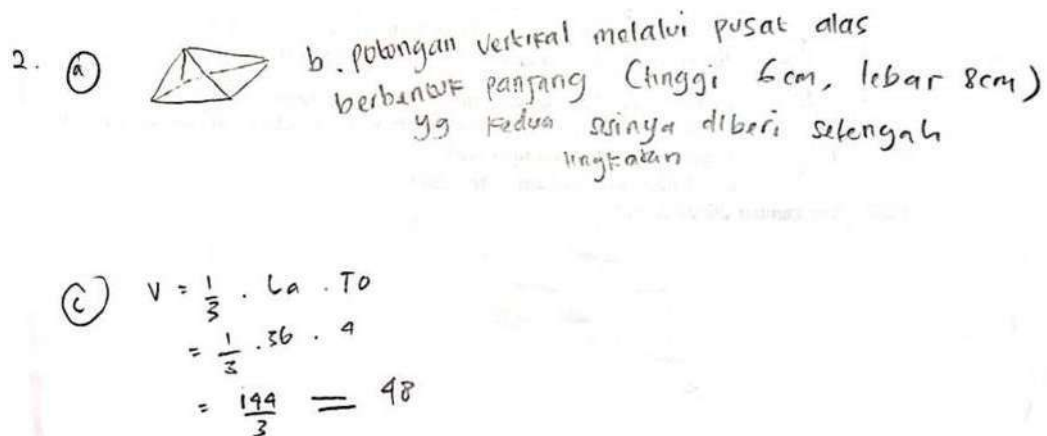 2. a b. potongan vertikal melalui pusat alas
berbentuk panjang (tinggi 6cm, lebar 8cm)
yg kedua sisinya diberi setengah
lingkaran
c V = 1/3 . La . To
= 1/3 . 36 . 4
= 144/3 = 48